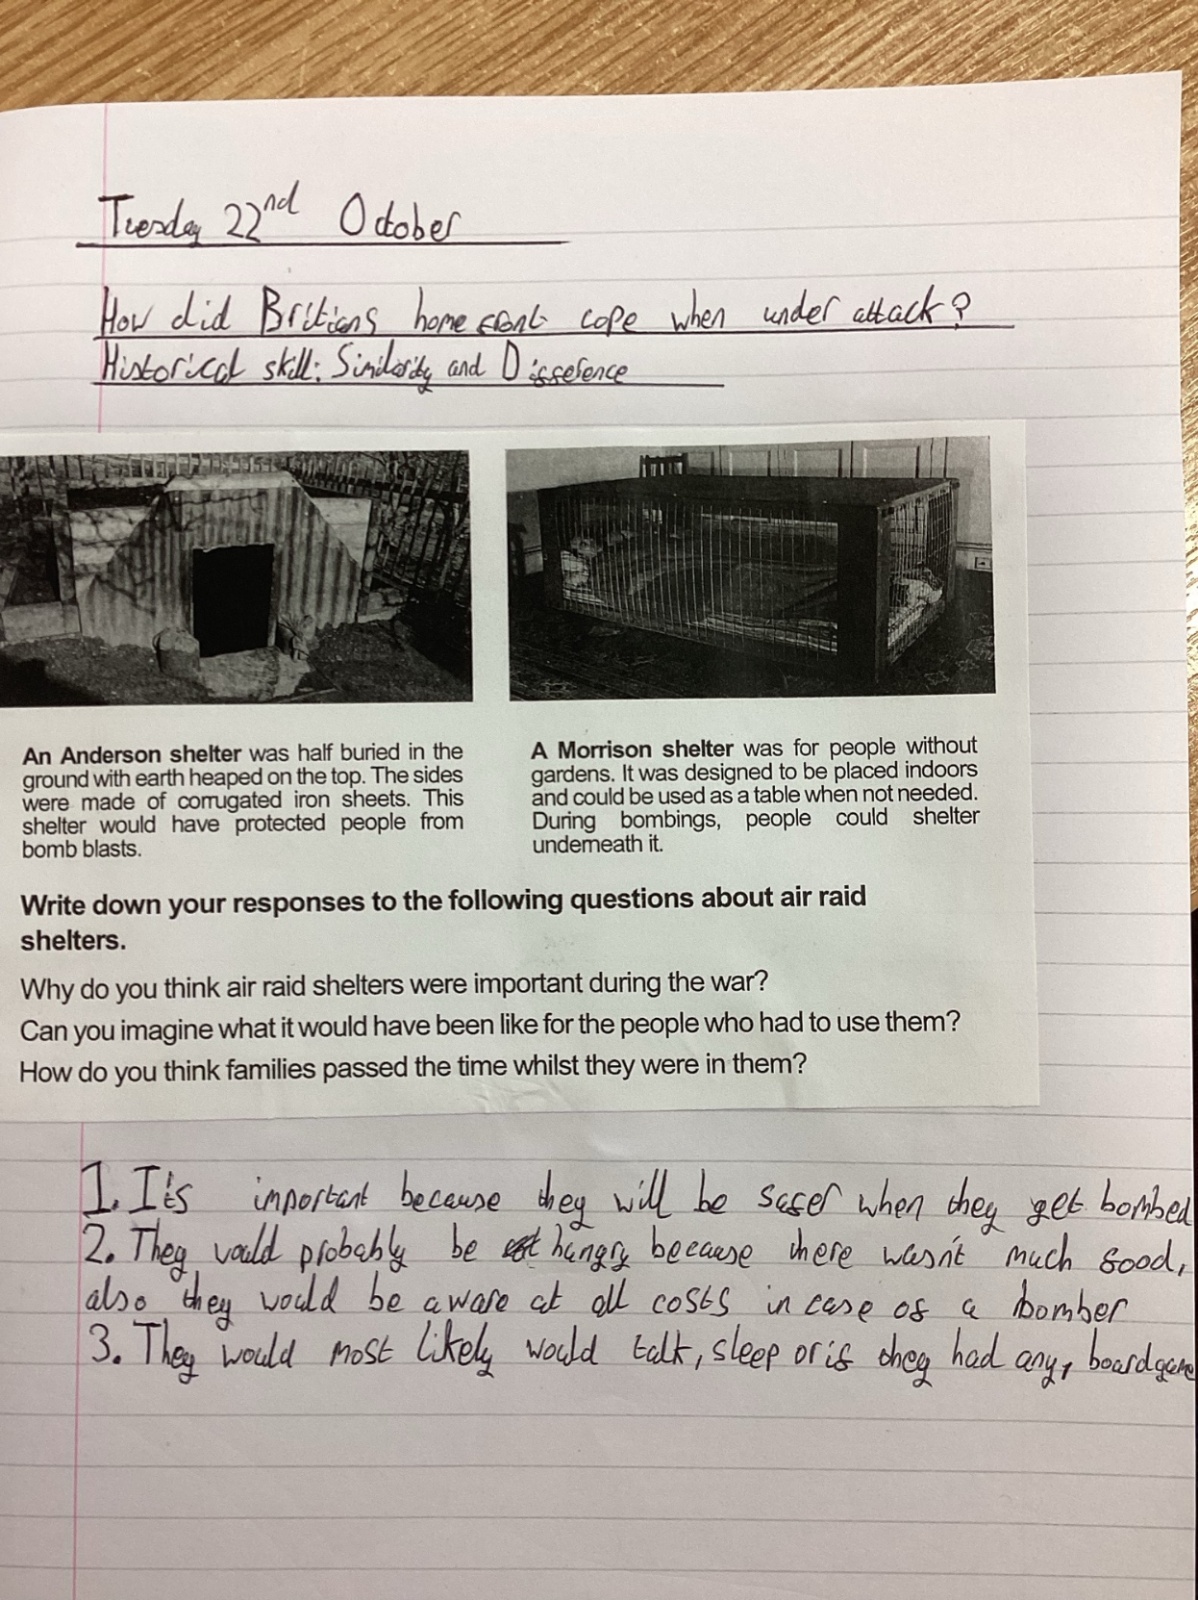 Tuesday 22nd October
How did Britians home front cope when under attack?
Historical skill: Similarity and Difference
An Anderson shelter was half buried in the
ground with earth heaped on the top. The sides
were made of corrugated iron sheets. This
shelter would have protected people from
bomb blasts.
A Morrison shelter was for people without
gardens. It was designed to be placed indoors
and could be used as a table when not needed.
During bombings, people could shelter
underneath it.
Write down your responses to the following questions about air raid
shelters.
Why do you think air raid shelters were important during the war?
Can you imagine what it would have been like for the people who had to use them?
How do you think families passed the time whilst they were in them?
1. It's important because they will be safer when they get bombed
2. They would probably be hungry because there wasn't much food,
also they would be aware at all costs in case of a bomber
3. They would most likely would talk, sleep or if they had any, boardgame